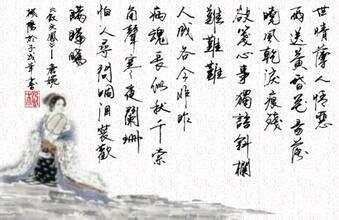 世情薄人情惡
雨送黄昏花易落
曉風乾淚痕殘
欲箋心事獨語斜欄
難難難
人成各今非昨
病魂常似秋千索
角聲寒夜闌珊
怕人尋問咽泪装歡
瞞瞞瞞
《釵頭鳳》唐婉